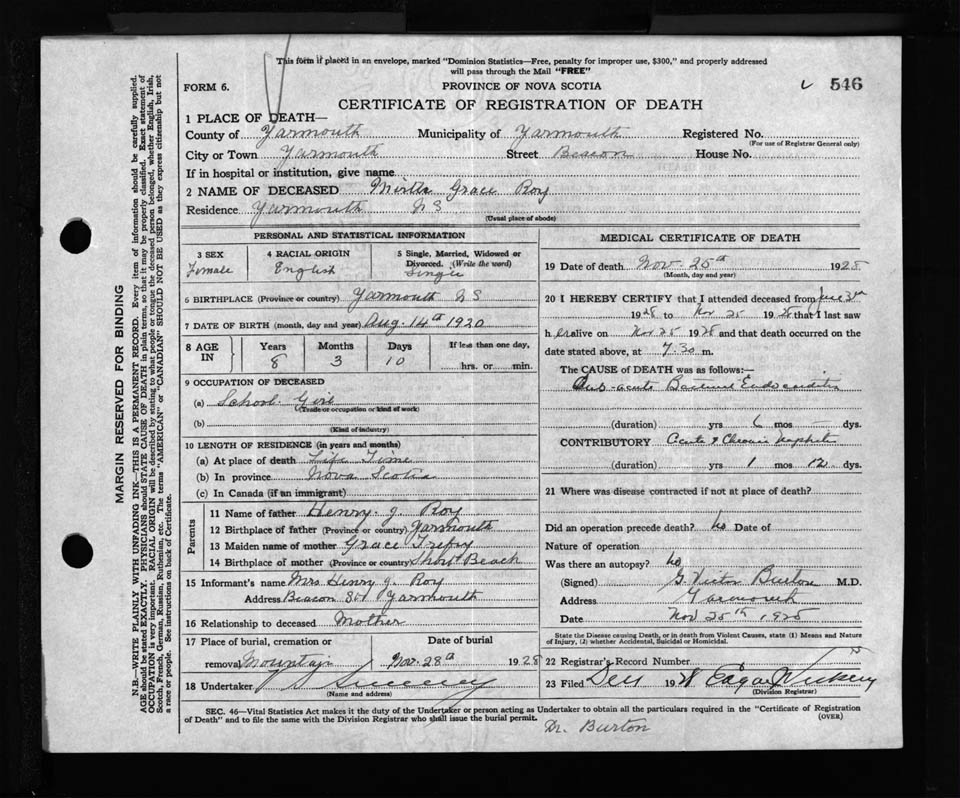 This form if placed in an envelope, marked "Dominion Statistics—Free, penalty for improper use, $300," and properly addressed
will pass through the Mail "FREE"
FORM 6.
PROVINCE OF NOVA SCOTIA
546
CERTIFICATE OF REGISTRATION OF DEATH
1 PLACE OF DEATH—
County of Yarmouth Municipality of Yarmouth Registered No.
(For use of Registrar General only)
City or Town Yarmouth Street Beacon House No.
If in hospital or institution, give name
2 NAME OF DECEASED Mirtle Grace Roy
Residence Yarmouth N S
(Usual place of abode)
PERSONAL AND STATISTICAL INFORMATION
3 SEX 4 RACIAL ORIGIN 5 Single, Married, Widowed or
Divorced. (Write the word)
Female English Single
6 BIRTHPLACE (Province or country) Yarmouth N S
7 DATE OF BIRTH (month, day and year) Aug. 14th 1920
8 AGE IN Years Months Days If less than one day,
8 3 10 hrs. or min.
9 OCCUPATION OF DECEASED
(a) School Girl
(Trade or occupation or kind of work)
(b)
(Kind of industry)
10 LENGTH OF RESIDENCE (in years and months)
(a) At place of death Life Time
(b) In province Nova Scotia
(c) In Canada (if an immigrant)
Parents
11 Name of father Henry J. Roy
12 Birthplace of father (Province or country) Yarmouth
13 Maiden name of mother Grace Trefry
14 Birthplace of mother (Province or country) Short Beach
15 Informant's name Mrs Henry J. Roy
Address Beacon St Yarmouth
16 Relationship to deceased Mother
17 Place of burial, cremation or Date of burial
removal Mountain Nov. 28th 1928
18 Undertaker Sweeney
(Name and address)
MEDICAL CERTIFICATE OF DEATH
19 Date of death Nov. 25th 1928
(Month, day and year)
20 I HEREBY CERTIFY that I attended deceased from
1928 to Nov 25 1928 that I last saw
h er alive on Nov 25 1928 and that death occurred on the
date stated above, at 7.30 m.
The CAUSE of DEATH was as follows:—
Sub-acute Endocarditis
(duration) yrs 6 mos days.
CONTRIBUTORY Acute & Chronic Nephritis
(duration) yrs 1 mos 12 dys.
21 Where was disease contracted if not at place of death?
Did an operation precede death? No Date of
Nature of operation
Was there an autopsy? No
(Signed) G. Victor Burton M.D.
Address Yarmouth
Date Nov 25th 1928
State the Disease causing Death, or in death from Violent Causes, state (1) Means and Nature
of Injury, (2) whether Accidental, Suicidal or Homicidal.
22 Registrar's Record Number
23 Filed Dec 1928
(Division Registrar)
SEC. 46—Vital Statistics Act makes it the duty of the Undertaker or person acting as Undertaker to obtain all the particulars required in the "Certificate of Registration
of Death" and to file the same with the Division Registrar who shall issue the burial permit. (OVER)
Dr. Burton
MARGIN RESERVED FOR BINDING
N.B.—WRITE PLAINLY WITH UNFADING INK—THIS IS A PERMANENT RECORD. Every item of information should be carefully supplied.
AGE should be stated EXACTLY. PHYSICIANS should STATE CAUSE OF DEATH in plain terms, so that it may be properly classified. Exact statement of
OCCUPATION is very important. RACIAL ORIGIN will be described by stating to what people or tongue the deceased person belonged, whether English, Irish,
Scotch, French, German, Russian, Ruthenian, etc. The terms "AMERICAN" or "CANADIAN" SHOULD NOT BE USED as they express citizenship but not
a race or people. See instructions on back of Certificate.